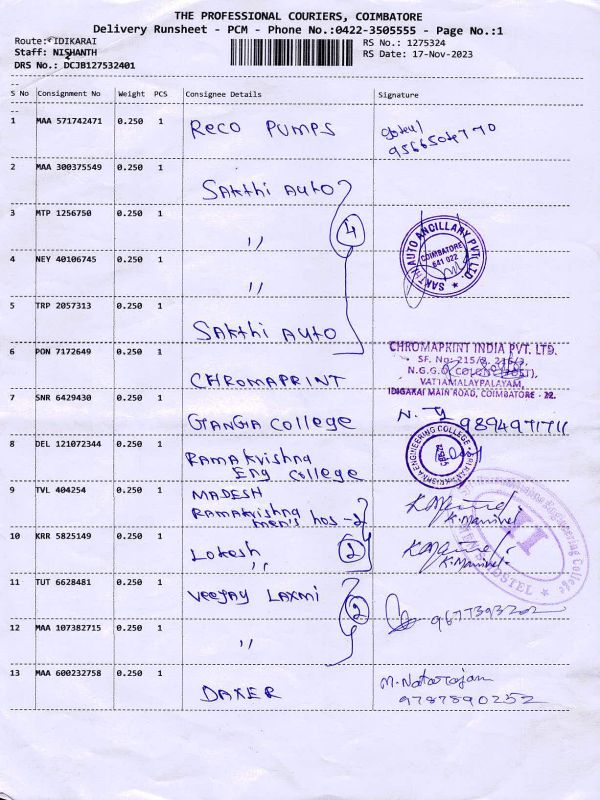 THE PROFESSIONAL COURIERS, COIMBATORE
Delivery Runsheet - PCM - Phone No.:0422-3505555 - Page No.:1
Route: IDIKARAI
RS No.: 1275324
Staff: NISHANTH
RS Date: 17-Nov-2023
DRS No.: DCJB127532401
S No Consignment No Weight PCS Consignee Details Signature
1 MAA 571742471 0.250 1 Reco PUMPS
2 MAA 300375549 0.250 1 Sakthi Auto
3 MTP 1256750 0.250 1 ,, 4
SAKTHI AUTO ANCILLARY PVT. LTD.
COIMBATORE
641 022
4 NEY 40106745 0.250 1 ,,
5 TRP 2057313 0.250 1 Sakthi Auto
6 PON 7172649 0.250 1 CHROMAPRINT
CHROMAPRINT INDIA PVT. LTD.
SF. No: 215/2, 216/3,
N.G.G.O. COLONY (POST),
VATTAMALAYPALAYAM,
IDIGARAI MAIN ROAD, COIMBATORE - 22.
7 SNR 6429430 0.250 1 GANGA College
8 DEL 121072344 0.250 1 Ramakrishna
Eng College
9 TVL 404254 0.250 1 MADESH
Ramakrishna
men's hos -2
K. Manivel
10 KRR 5825149 0.250 1 Lokesh 2
,,
K. Manivel
11 TUT 6628481 0.250 1 Veejay Laxmi 2
12 MAA 107382715 0.250 1 ,,
13 MAA 600232758 0.250 1 DAXER
M. Natarajan
9787590252